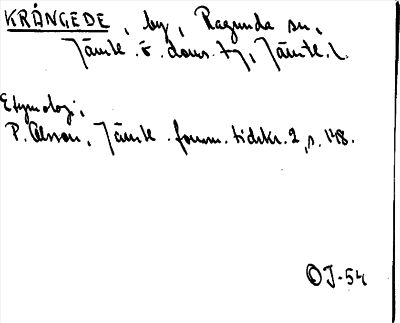 KRÅNGEDE, by, Ragunda sn,
Jämtl. ö. doms. tg, Jämtl. l.
Etymologi,
P. Olsson, Jämtl. fornm. tidskr. 2, s. 148.
OJ-54